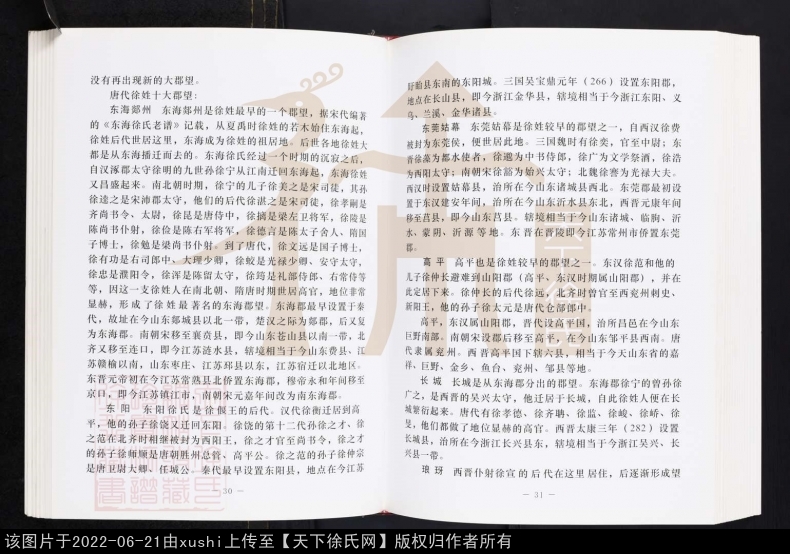 没有再出现新的大郡望。
唐代徐姓十大郡望：
东海郯州 东海郯州是徐姓最早的一个郡望，据宋代编著
的《东海徐氏老谱》记载，从夏禹时徐姓的若木始住东海起，
徐姓后代世居这里，东海成为徐姓的祖居地。后世各地徐姓大
都是从东海播迁而去的。东海徐氏经过一个时期的沉寂之后，
自汉涿郡太守徐明的九世孙徐宁从江南迁回东海起，东海徐姓
又昌盛起来。南北朝时期，徐宁的儿子徐美之是宋司徒，其孙
徐逵之是宋沛郡太守，他们的后代徐湛之是宋司徒，徐孝嗣是
齐尚书令、太尉，徐昆是唐侍中，徐摛是梁左卫将军，徐陵是
陈尚书仆射，徐俭是陈右军将军，徐德言是陈太子舍人、隋国
子博士，徐勉是梁尚书仆射。到了唐代，徐文远是国子博士，
徐有功是右司郎中、大理少卿，徐皎是光禄少卿、安守太守，
徐忠是濮阳令，徐浑是陈留太守，徐筠是礼部侍郎、右常侍等
等，因这一支徐姓人在南北朝、隋唐时期世居高官，地位非常
显赫，形成了徐姓最著名的东海郡望。东海郡最早设置于秦
代，故址在今山东郯城县以北一带，楚汉之际为郯郡，后又复
为东海郡。南朝宋移至襄贲县，即今山东苍山县以南一带，北
齐又移至连口，即今江苏涟水县，辖境相当于今山东费县、江
苏赣榆以南，山东枣庄、江苏邳县以东，江苏宿迁以北地区。
东晋元帝初在今江苏常熟县北侨置东海郡，穆帝永和年间移至
京口，即今江苏镇江市，南朝宋元嘉年间改为南东海郡。
东阳 东阳徐氏是徐偃王的后代。汉代徐衡迁居到高
平，他的孙子徐饶又迁回东阳。徐饶的第十二代孙徐之才、徐
之范在北齐时相继被封为西阳王，徐之才官至尚书令，徐之才
的孙子徐师顺是唐朝胜州总管、高平公。徐之范的孙子徐仲宗
是唐卫尉大卿、任城公。秦代最早设置东阳县，地点在今江苏
— 30 —
盱眙县东南的东阳城。三国吴宝鼎元年（266）设置东阳郡，
地点在长山县，即今浙江金华县，辖境相当于今浙江东阳、义
乌、兰溪、金华诸县。
东莞姑幕 东莞姑幕是徐姓较早的郡望之一，自西汉徐费
被封为东莞侯，便世居此地。三国魏时有徐奕，官至中尉；东
晋徐藻为都水使者，徐邈为中书侍郎，徐广为文学祭酒，徐浩
为西阳太守；南朝宋徐豁为始兴太守；北魏徐謇为光禄大夫。
西汉时设置姑幕县，治所在今山东诸城县西北。东莞郡最初设
置于东汉建安年间，治所在今山东沂水县东北，西晋元康年间
移至莒县，即今山东莒县。辖境相当于今山东诸城、临朐、沂
水、蒙阴、沂源等地。东晋在晋陵即今江苏常州市侨置东莞
郡。
高平 高平也是徐姓较早的郡望之一。东汉徐范和他的
儿子徐仲长避难到山阳郡（高平、东汉时期属山阳郡），并在
此定居下来。徐仲长的后代徐远，北齐时曾官至西兖州刺史、
新阳王，他的孙子徐太元是唐代仓部郎中。
高平，东汉属山阳郡，晋代设高平国，治所昌邑在今山东
巨野南部。南朝宋设郡后移至高平，在今山东邹平县西南。唐
代隶属兖州。西晋高平国下辖六县，相当于今天山东省的嘉
祥、巨野、金乡、鱼台、兖州、邹县等地。
长城 长城是从东海郡分出的郡望。东海郡徐宁的曾孙徐
广之，是西晋的吴兴太守，他迁居于长城，自此徐姓人便在长
城繁衍起来。唐代有徐孝德、徐齐聃、徐监、徐峻、徐峤、徐
旻，他们都做了地位显赫的高官。西晋太康三年（282）设置
长城县，治所在今浙江长兴县东，辖境相当于今浙江吴兴、长
兴县一带。
琅玡 西晋仆射徐宣的后代在这里居住，后逐渐形成望
— 31 —
该图片于2022-06-21由xushi上传至【天下徐氏网】版权归作者所有